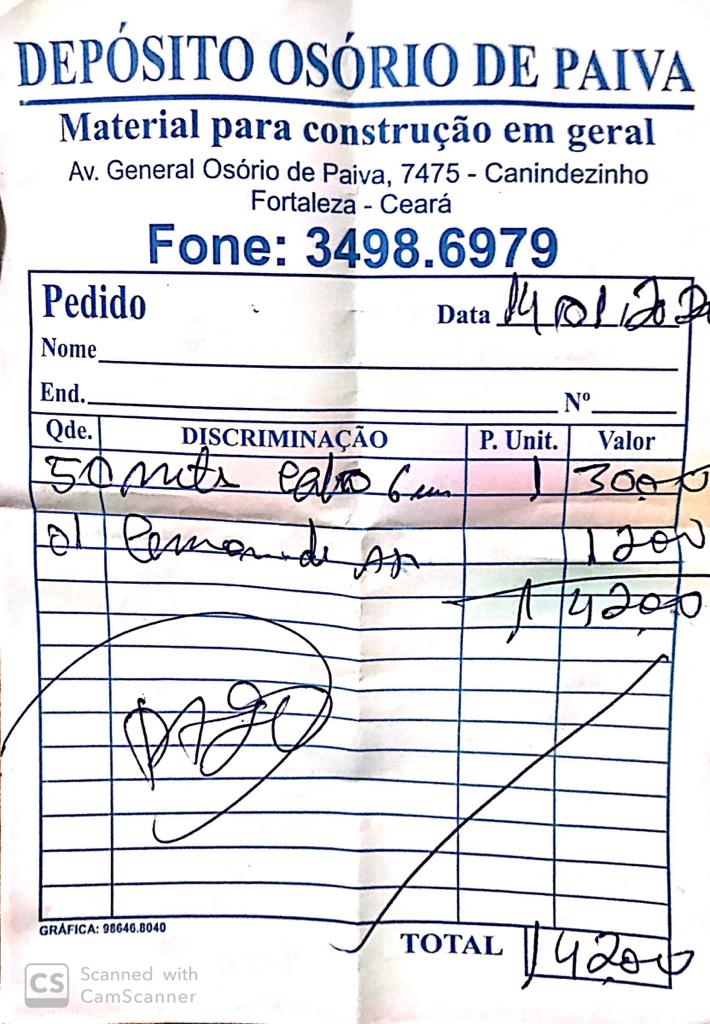 DEPÓSITO OSÓRIO DE PAIVA
Material para construção em geral
Av. General Osório de Paiva, 7475 - Canindezinho
Fortaleza - Ceará
Fone: 3498.6979
Pedido
Data 14 01
Nome
End. Nº
Qde. DISCRIMINAÇÃO P. Unit. Valor
50 cabo 6 300,00
01 de 1200
4200
PAGO
GRÁFICA: 98646.8040
TOTAL 4200
CS Scanned with
CamScanner